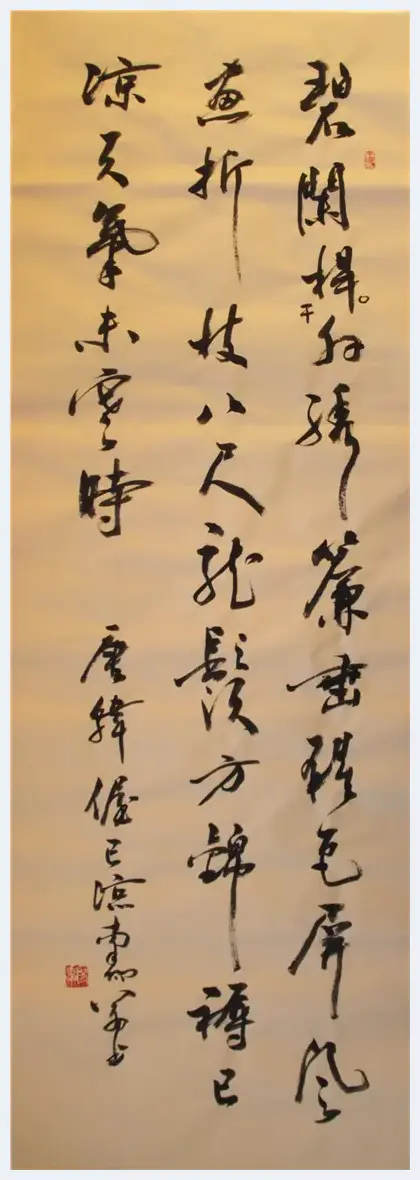 碧闌桿外繡簾垂猩色屏風
干
畫折枝八尺龍鬚方錦褥已
涼天氣未寒時 唐韓偓已涼